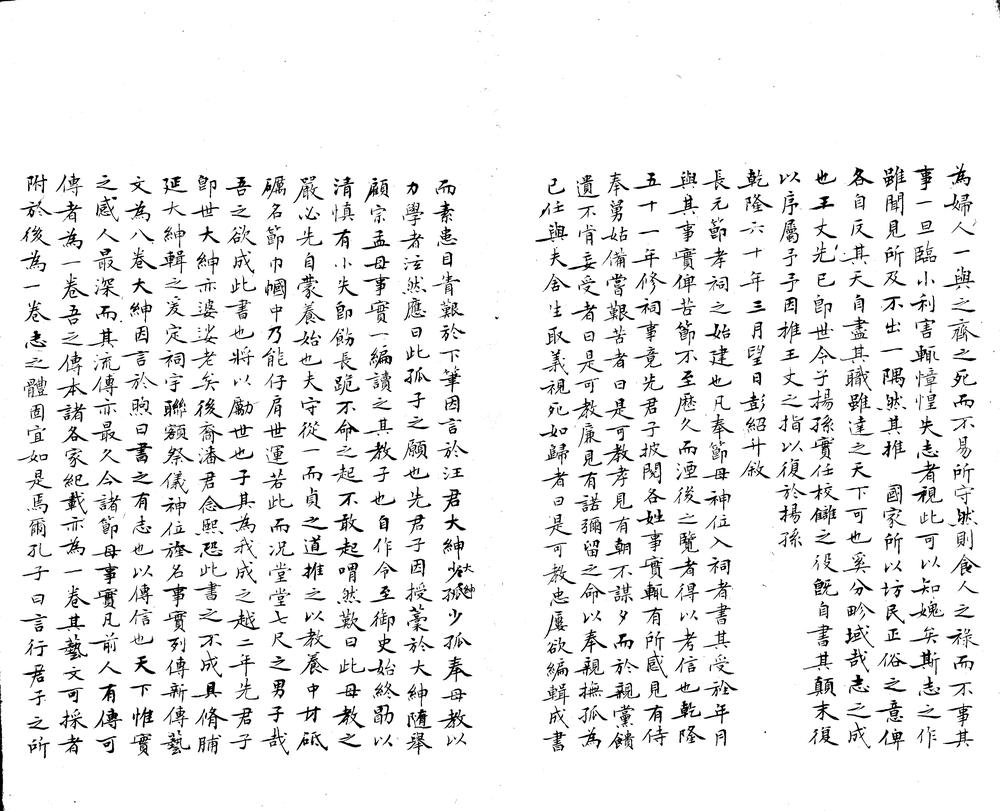 為婦人一與之齊之死而不易所守然則食人之祿而不事其
事一旦臨小利害輒憧惶失志者視此可以知媿矣斯志之作
雖聞見所及不出一隅然其推　國家所以坊民正俗之意俾
各自反其天自盡其職雖達之天下可也奚分畛域哉志之成
也王丈先已卽世令子揚孫實任校讎之役旣自書其顛末復
以序屬予予因推王丈之指以復於揚孫
乾隆六十年三月望日彭紹升敘
長元節孝祠之始建也凡奉節母神位入祠者書其受旌年月
與其事實俾苦節不至歷久而湮後之覽者得以考信也乾隆
五十一年修祠事竟先君子披閱各姓事實輒有所感見有侍
奉舅姑備嘗艱苦者曰是可教孝見有朝不謀夕而於親黨饋
遺不肯妄受者曰是可教廉見有諾彌留之命以奉親撫孤為
己任與夫舍生取義視死如歸者曰是可教忠屢欲編輯成書
而素患目眚艱於下筆因言於汪君大紳大紳少孤奉母教以
力學者泫然應曰此孤子之願也先君子因授藁於大紳隨舉
顧宗孟母事實一編讀之其教子也自作令至御史始終勖以
清慎有小失卽飭長跪不命之起不敢起喟然歎曰此母教之
嚴必先自蒙養始也夫守從一而貞之道推之以教養中材砥
礪名節巾幗中乃能仔肩世運若此而况堂堂七尺之男子哉
吾之欲成此書也將以勵世也子其為我成之越二年先君子
卽世大紳亦婆娑老矣後裔潘君念熙恐此書之不成具脩脯
延大紳輯之爰定祠宇聯額祭儀神位旌名事實列傳新傳藝
文為八卷大紳因言於煦曰書之有志也以傳信也天下惟實
之感人最深而其流傳亦最久今諸節母事實凡前人有傳可
傳者為一卷吾之傳本諸各家紀載亦為一卷其藝文可採者
附於後為一卷志之體固宜如是焉爾孔子曰言行君子之所